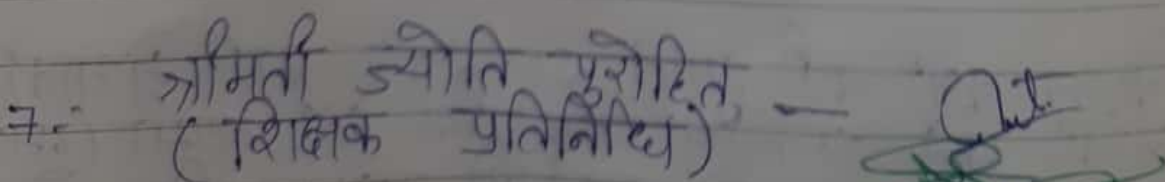 श्रीमती ज्योति पुरोहित -
7.- (शिक्षक प्रतिनिधि)